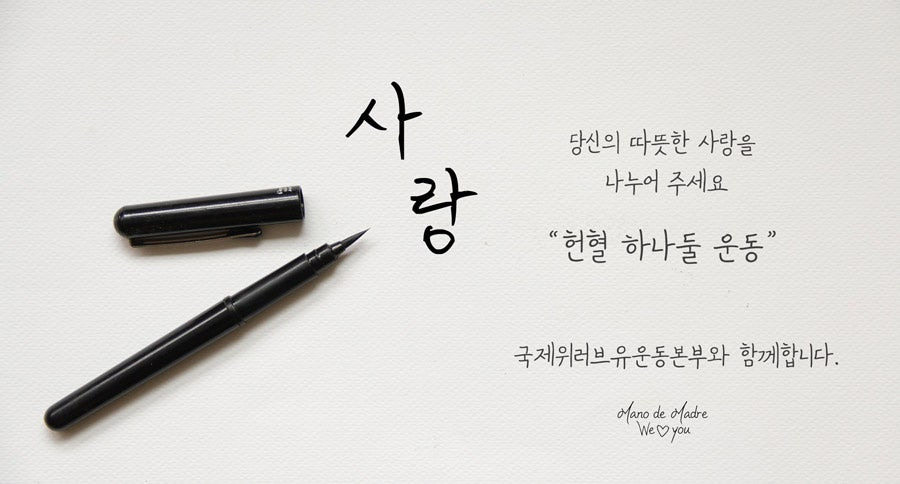 사
랑
당신의 따뜻한 사랑을
나누어 주세요
“헌혈 하나둘 운동”
국제위러브유운동본부와 함께합니다.
Mano de Madre
We♡you